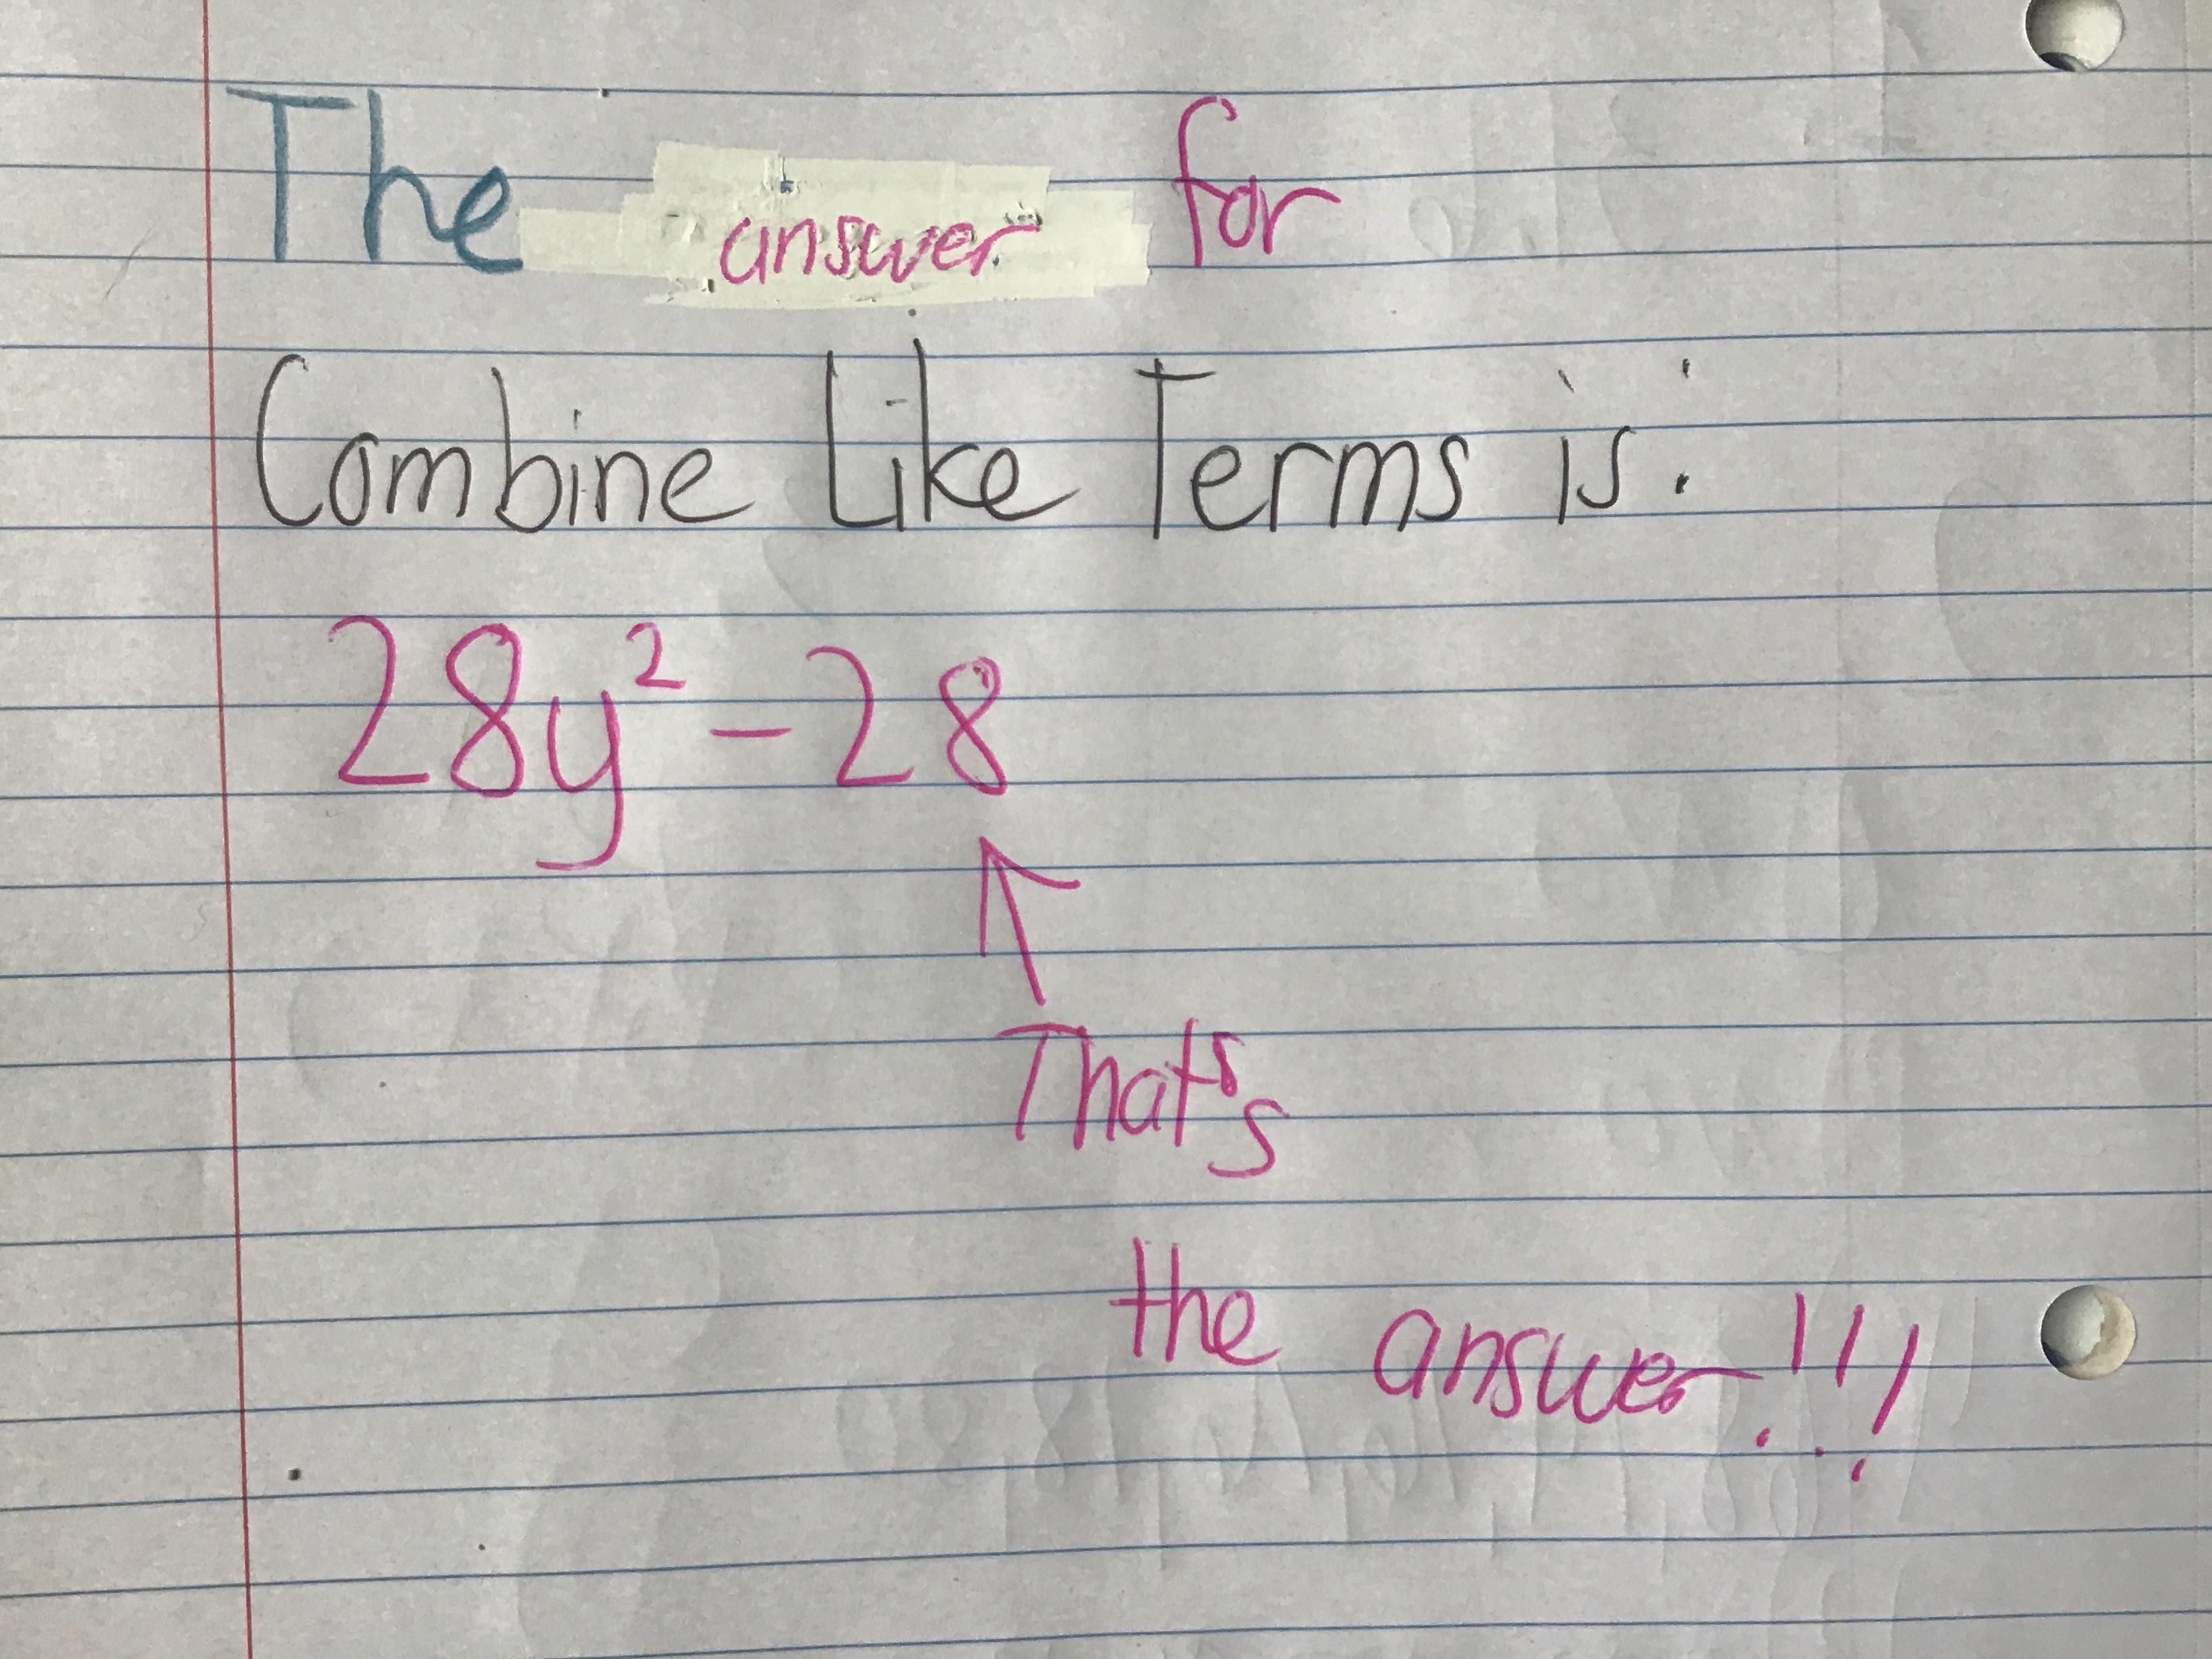 The answer for
Combine Like Terms is:
28y² - 28
That's
the answer!!!